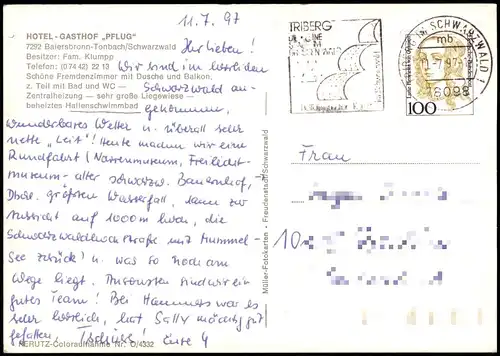 11.7.97
HOTEL-GASTHOF "PFLUG"
7292 Baiersbronn-Tonbach/Schwarzwald
Besitzer: Fam. Klumpp
Telefon: (0 74 42) 22 13
Schöne Fremdenzimmer mit Dusche und Balkon,
z. Teil mit Bad und WC —
Zentralheizung — sehr große Liegewiese —
beheiztes Hallenschwimmbad
Ihr Lieben!
Wir sind im herrlichen
Schwarzwald an-
gekommen,
wunderbares Wetter u. überall sehr
nette "Leit"! Heute machen wir eine
Rundfahrt (Narrenmuseum, Freilicht-
museum - alter schwarzw. Bauernhof,
größten Wasserfall, dann zur
Aussicht auf 1000 m hoch, die
Schwarzwaldhochstraße mit Mummel-
See zurück! u. was so noch am
Wege liegt. Ansonsten sind wir ein
gutes Team! Bei Hannes war es
sehr herrlich, hat Sally mächtig gut
gefallen. Tschüss! Eure 4
KRÜTZ-Coloraufnahme Nr. O/4332
Müller-Fotokarten · Freudenstadt/Schwarzwald
TRIBERG
SCHWARZWALD
mb
100
Frau
10